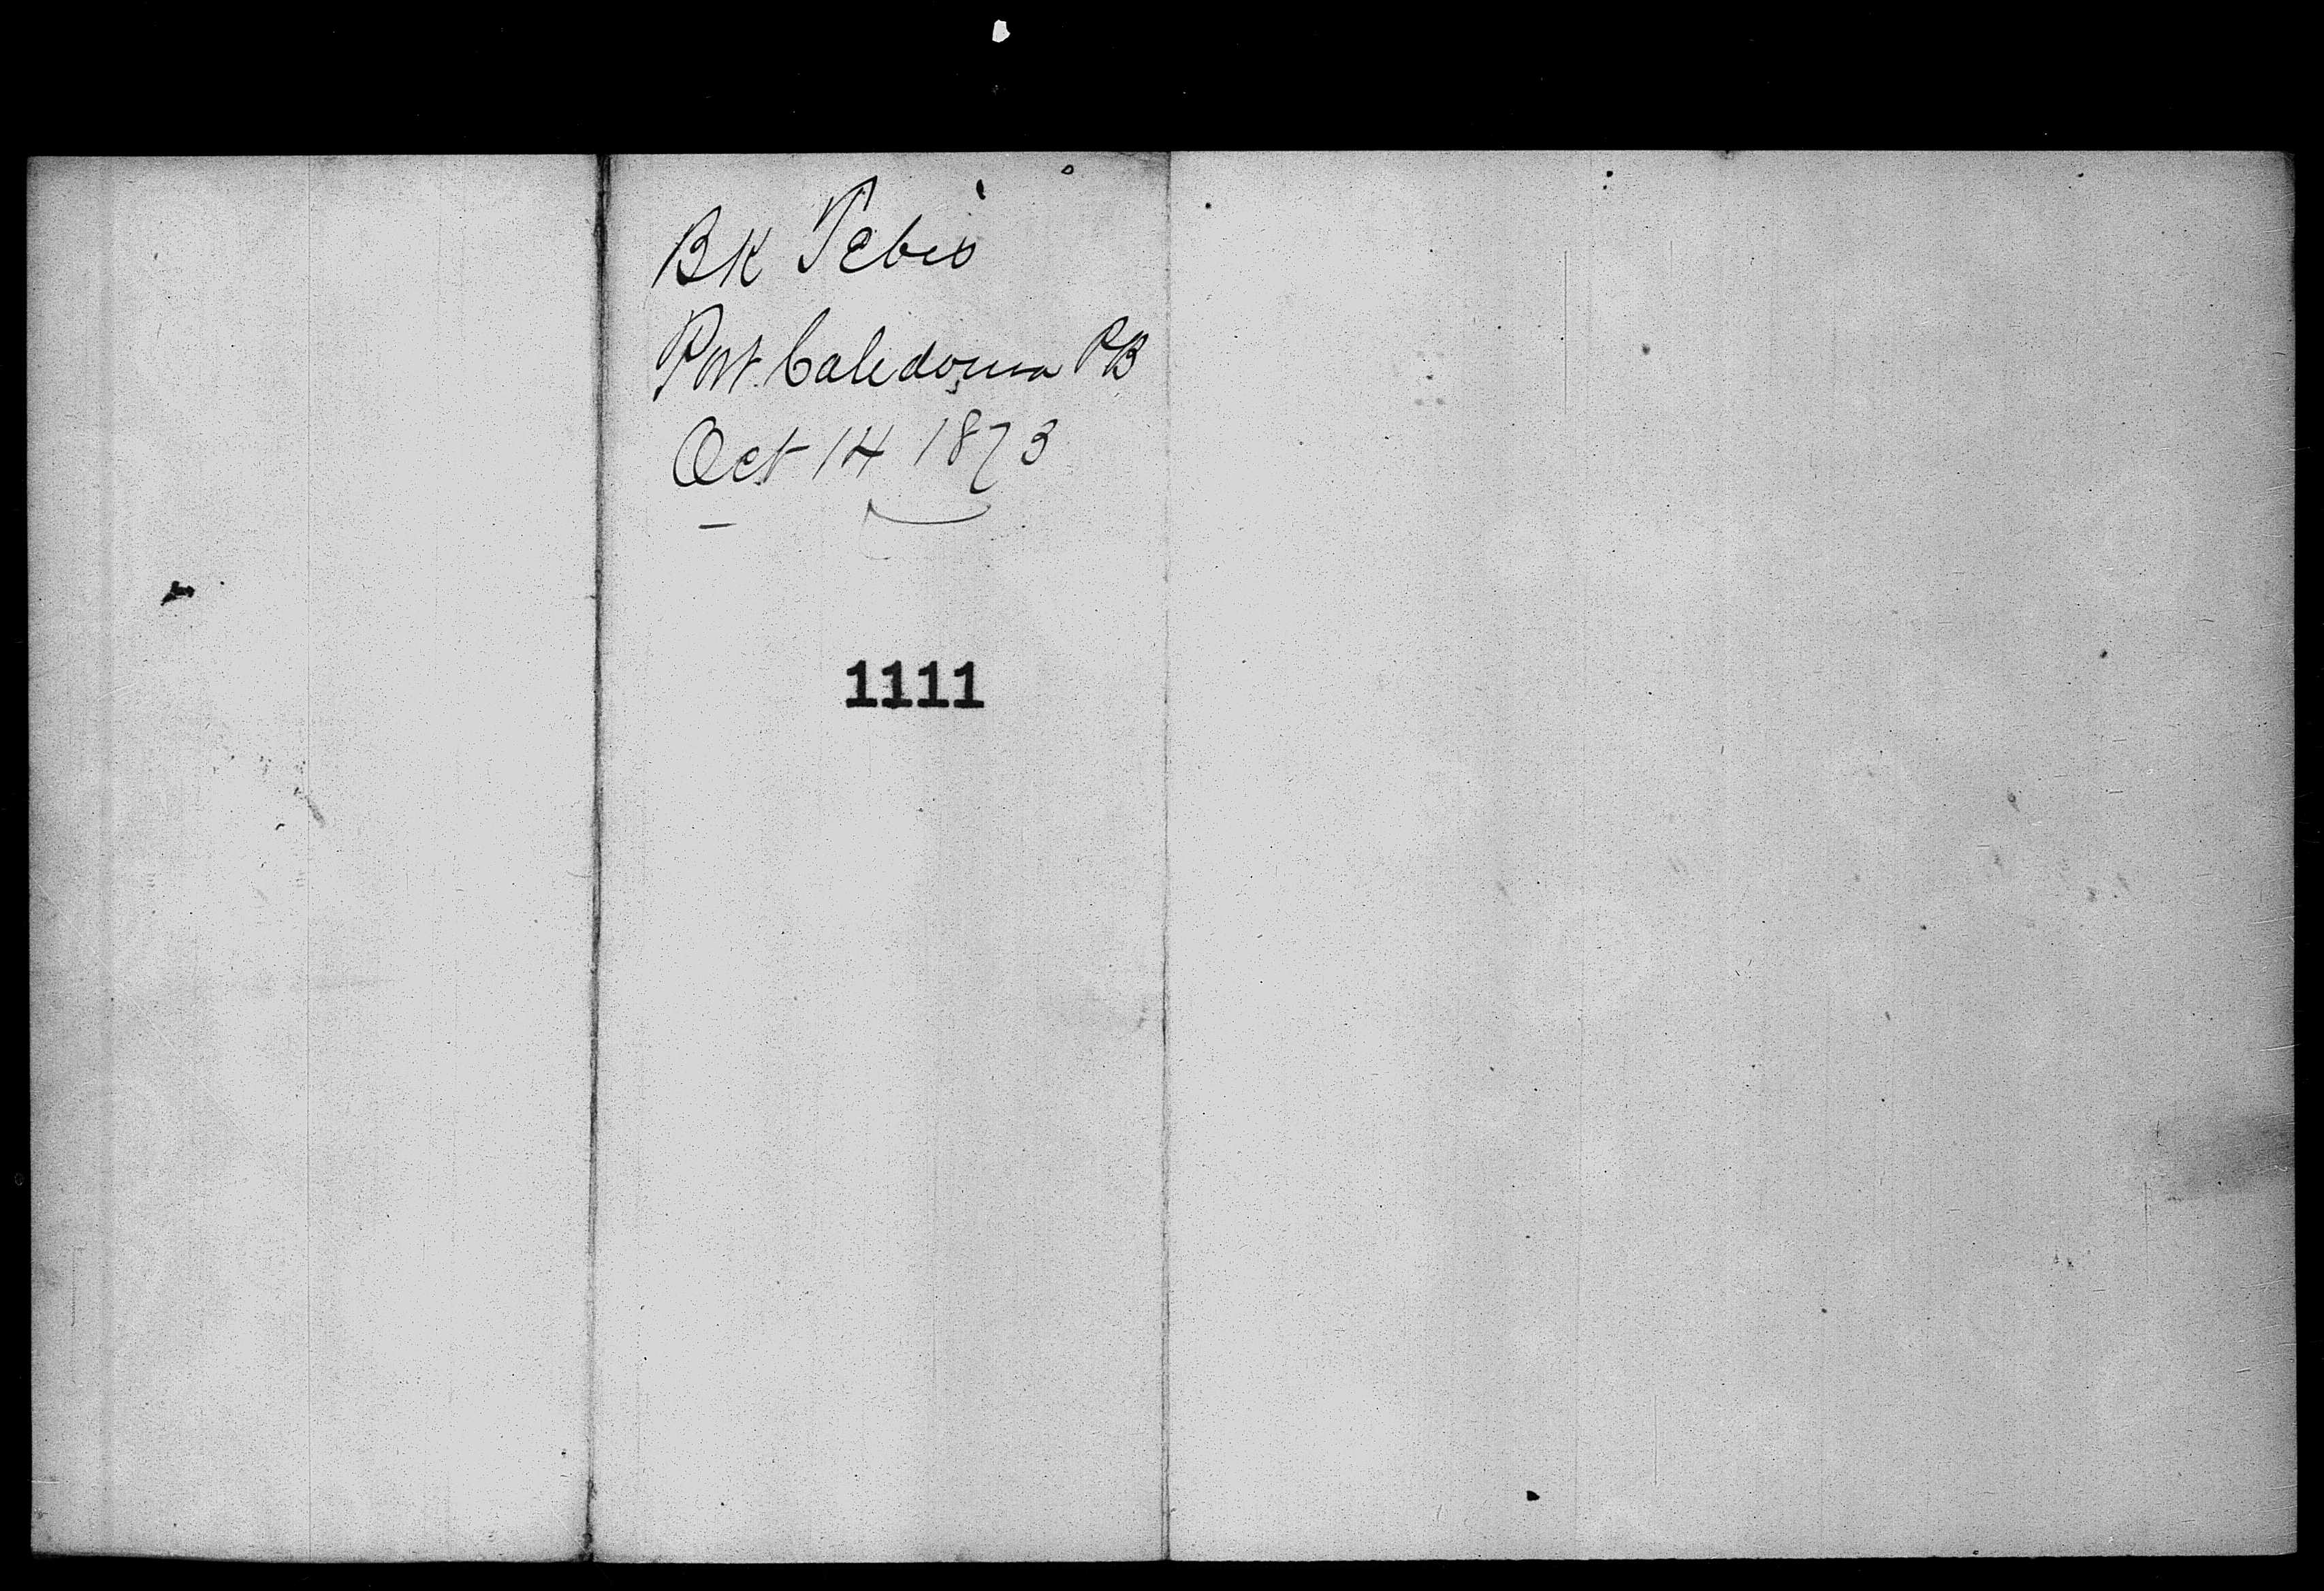 BK Tebis
Port Caledonia PB
Oct 14 1873
1111